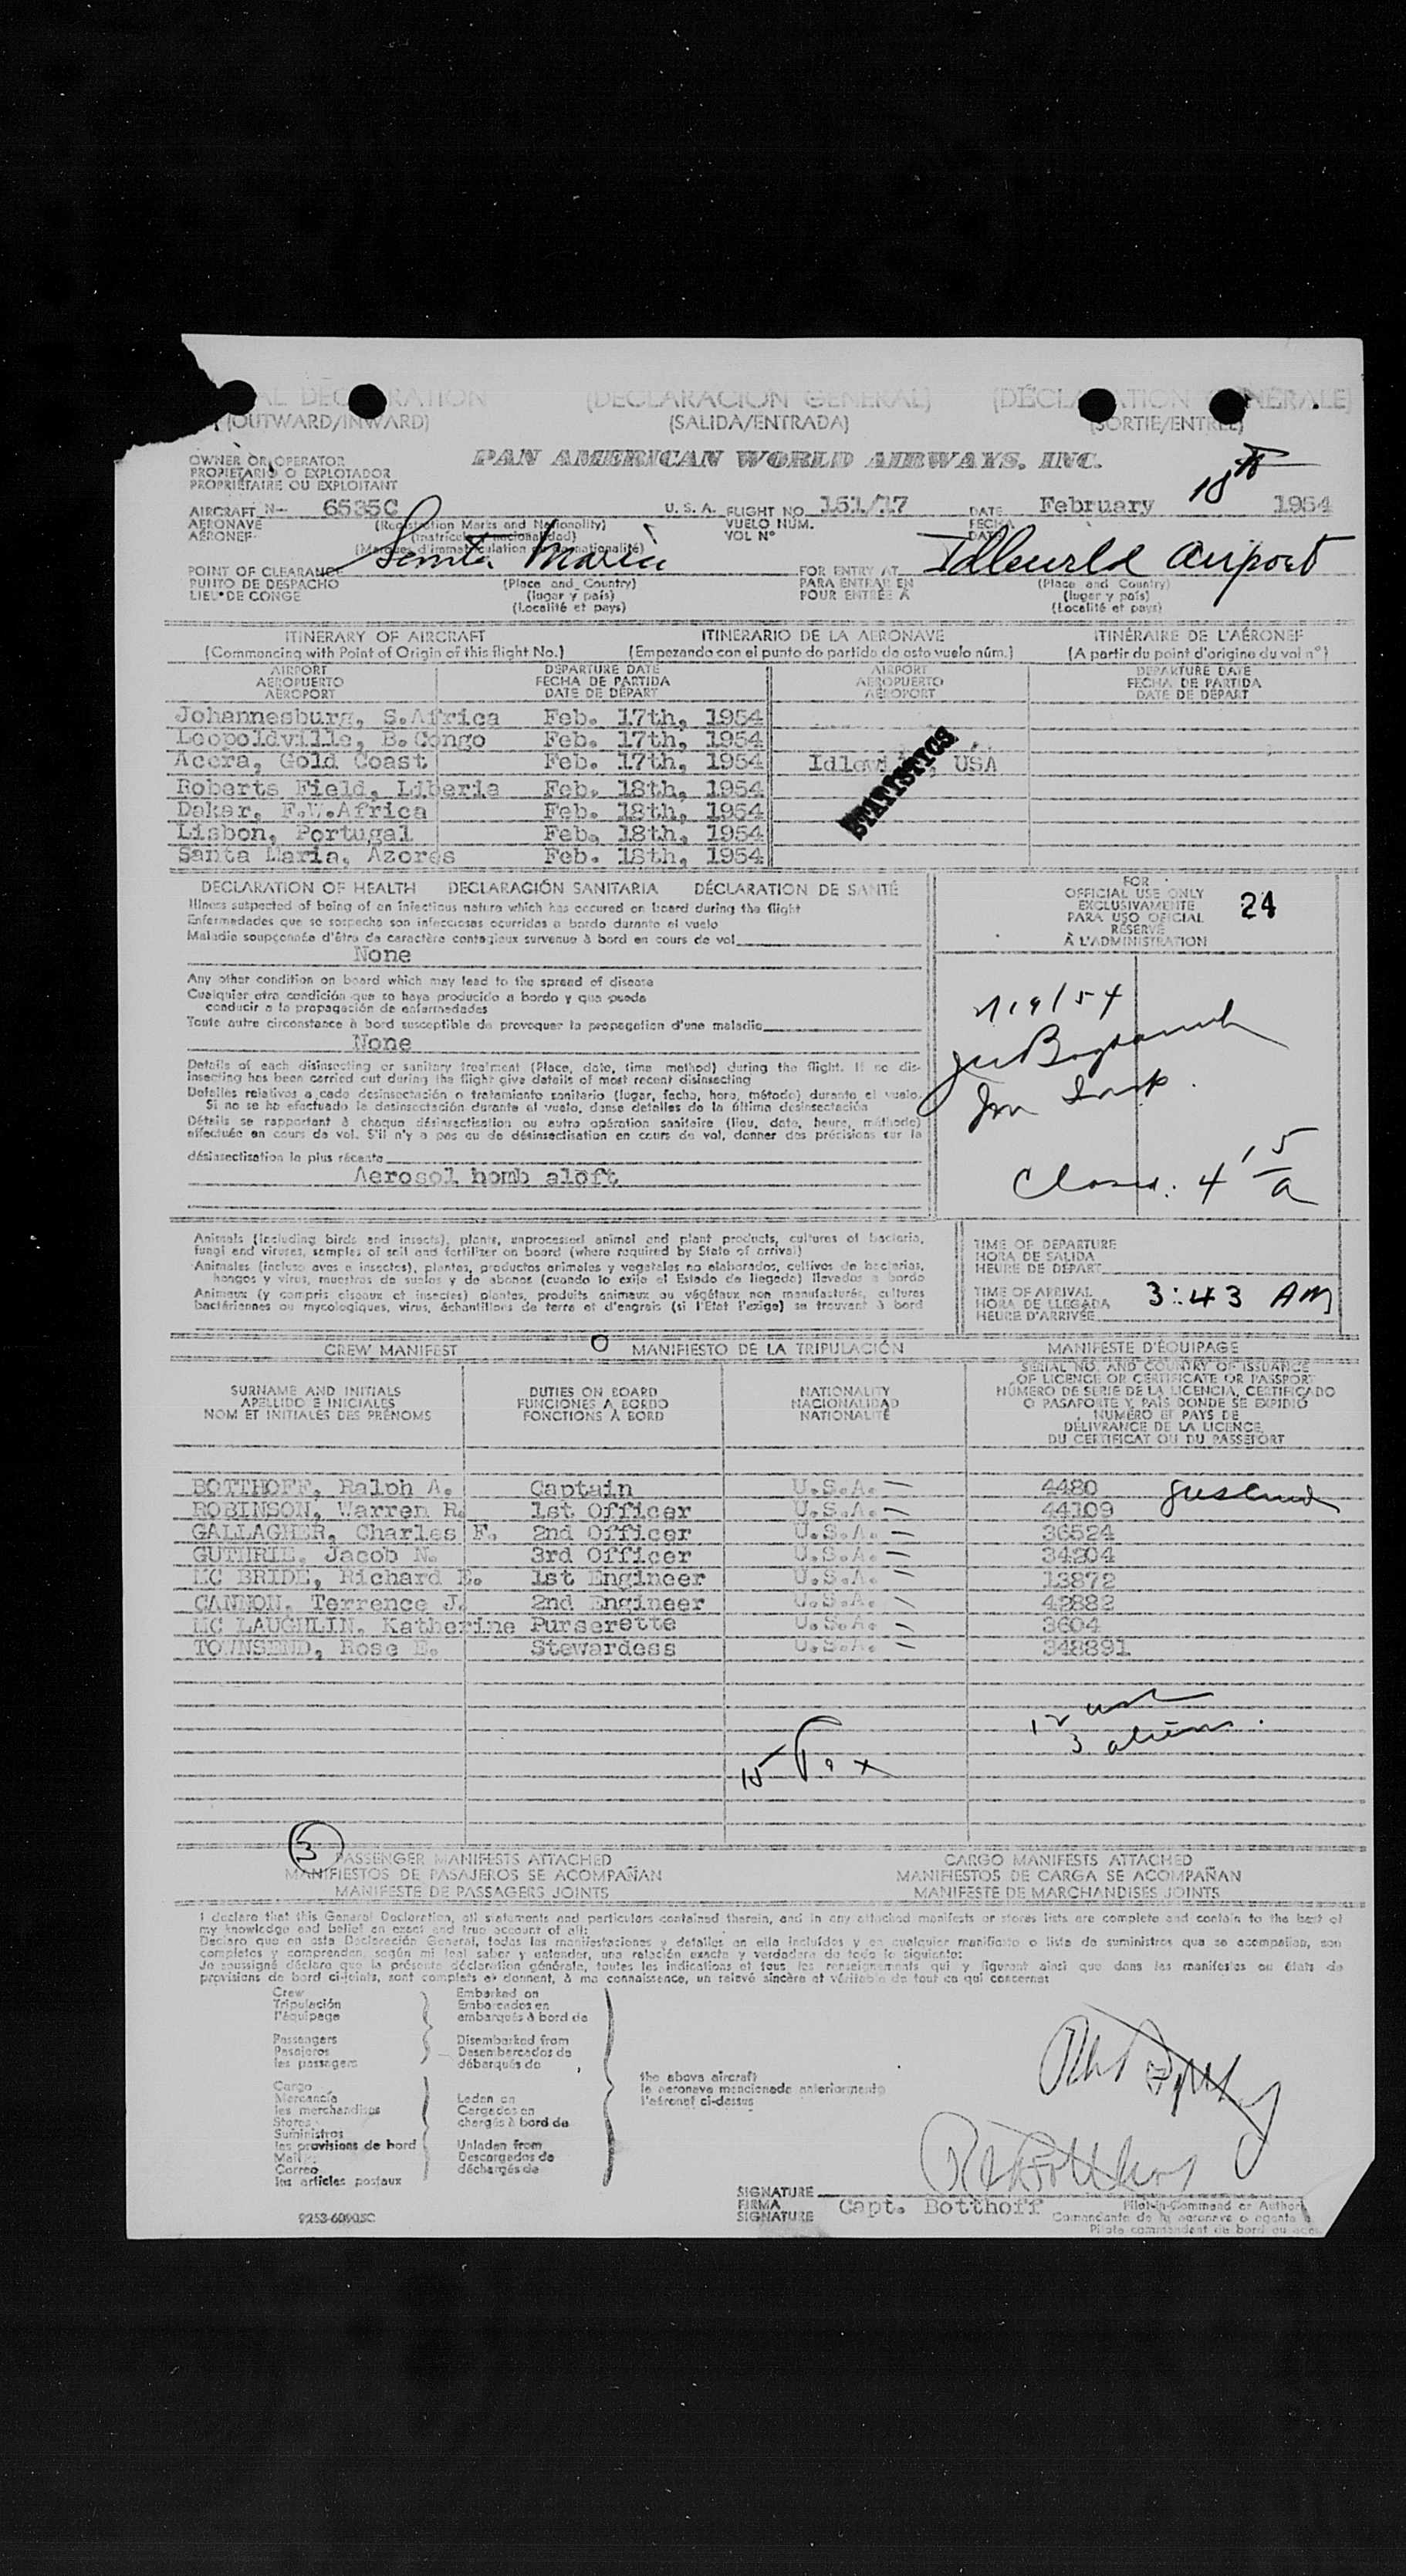 AL DEC RATION (DECLARACION GENERAL) (DÉCLA ATION NÉRALE)
(OUTWARD/INWARD) (SALIDA/ENTRADA) (SORTIE/ENTRÉE)
OWNER OR OPERATOR
PROPIETARIO O EXPLOTADOR
PROPRIÉTAIRE OU EXPLOITANT
PAN AMERICAN WORLD AIRWAYS, INC.
AIRCRAFT N- 6535C U. S. A. FLIGHT NO. 151/17 DATE February 18th 1954
AERONAVE (Registration Marks and Nationality) VUELO NÚM. FECHA
AÉRONEF (matrícula y nacionalidad) VOL Nº DATE
(Marques d'immatriculation et nationalité)
POINT OF CLEARANCE Santa Maria FOR ENTRY AT Idlewild Airport
PUNTO DE DESPACHO (Place and Country) PARA ENTRAR EN (Place and Country)
LIEU DE CONGE (lugar y país) POUR ENTRÉE À (lugar y país)
(Localité et pays) (Localité et pays)
ITINERARY OF AIRCRAFT ITINERARIO DE LA AERONAVE ITINÉRAIRE DE L'AÉRONEF
(Commencing with Point of Origin of this flight No.) (Empezando con el punto de partida de este vuelo núm.) (A partir du point d'origine du vol nº)
AIRPORT DEPARTURE DATE AIRPORT DEPARTURE DATE
AEROPUERTO FECHA DE PARTIDA AEROPUERTO FECHA DE PARTIDA
AÉROPORT DATE DE DÉPART AÉROPORT DATE DE DÉPART
Johannesburg, S.Africa Feb. 17th, 1954
Leopoldville, B.Congo Feb. 17th, 1954
Accra, Gold Coast Feb. 17th, 1954 Idlewild, USA
STATISTICS
Roberts Field, Liberia Feb. 18th, 1954
Dakar, F.W.Africa Feb. 18th, 1954
Lisbon, Portugal Feb. 18th, 1954
Santa Maria, Azores Feb. 18th, 1954
DECLARATION OF HEALTH DECLARACIÓN SANITARIA DÉCLARATION DE SANTÉ
Illness suspected of being of an infectious nature which has occured on board during the flight
Enfermedades que se sospecha son infecciosas ocurridas a bordo durante el vuelo
Maladie soupçonnée d'être de caractère contagieux survenue à bord en cours de vol
None
FOR
OFFICIAL USE ONLY
EXCLUSIVAMENTE
PARA USO OFICIAL
RÉSERVÉ
À L'ADMINISTRATION
24
Any other condition on board which may lead to the spread of disease
Cualquier otra condición que se haya producido a bordo y que pueda
conducir a la propagación de enfermedades
Toute autre circonstance à bord susceptible de provoquer la propagation d'une maladie
None
2/19/54
Details of each disinsecting or sanitary treatment (Place, date, time method) during the flight. If no dis-
insecting has been carried out during the flight give details of most recent disinsecting
Detalles relativos a cada desinsectación o tratamiento sanitario (lugar, fecha, hora, método) durante el vuelo.
Si no se ha efectuado la desinsectación durante el vuelo, dense detalles de la última desinsectación
Détails se rapportant à chaque désinsectisation ou autre opération sanitaire (lieu, date, heure, méthode)
effectuée en cours de vol. S'il n'y a pas eu de désinsectisation en cours de vol, donner des précisions sur la
désinsectisation la plus récente
Aerosol bomb aloft
Closed: 4 15 a
Animals (including birds and insects), plants, unprocessed animal and plant products, cultures of bacteria,
fungi and viruses, samples of soil and fertilizer on board (where required by State of arrival)
Animales (incluso aves e insectos), plantas, productos animales y vegetales no elaborados, cultivos de bacterias,
hongos y virus, muestras de suelos y de abonos (cuando lo exija el Estado de llegada) llevados a bordo
Animaux (y compris oiseaux et insectes) plantes, produits animaux ou végétaux non manufacturés, cultures
bactériennes ou mycologiques, virus, échantillons de terre et d'engrais (si l'Etat l'exige) se trouvant à bord
O
TIME OF DEPARTURE
HORA DE SALIDA
HEURE DE DÉPART
TIME OF ARRIVAL
HORA DE LLEGADA 3:43 AM
HEURE D'ARRIVÉE
CREW MANIFEST MANIFIESTO DE LA TRIPULACIÓN MANIFESTE D'ÉQUIPAGE
SURNAME AND INITIALS
APELLIDO E INICIALES
NOM ET INITIALES DES PRÉNOMS
DUTIES ON BOARD
FUNCIONES A BORDO
FONCTIONS À BORD
NATIONALITY
NACIONALIDAD
NATIONALITÉ
SERIAL NO. AND COUNTRY OF ISSUANCE
OF LICENCE OR CERTIFICATE OR PASSPORT
NÚMERO DE SERIE DE LA LICENCIA, CERTIFICADO
O PASAPORTE Y PAÍS DONDE SE EXPIDIÓ
NUMÉRO ET PAYS DE
DÉLIVRANCE DE LA LICENCE,
DU CERTIFICAT OU DU PASSEPORT
BOTTHOFF, Ralph A. Captain U.S.A. 4480
ROBINSON, Warren R. 1st Officer U.S.A. 44109
GALLAGHER, Charles F. 2nd Officer U.S.A. 36524
GUTHRIE, Jacob N. 3rd Officer U.S.A. 34204
MC BRIDE, Richard E. 1st Engineer U.S.A. 13872
CANNON, Terrence J. 2nd Engineer U.S.A. 42882
MC LAUGHLIN, Katherine Purserette U.S.A. 3604
TOWNSEND, Rose E. Stewardess U.S.A. 348891
12 usc
3 aliens
15 Pax
3
PASSENGER MANIFESTS ATTACHED CARGO MANIFESTS ATTACHED
MANIFIESTOS DE PASAJEROS SE ACOMPAÑAN MANIFIESTOS DE CARGA SE ACOMPAÑAN
MANIFESTE DE PASSAGERS JOINTS MANIFESTE DE MARCHANDISES JOINTS
I declare that this General Declaration, all statements and particulars contained therein, and in any attached manifests or stores lists are complete and contain to the best of
my knowledge and belief an exact and true account of all:
Declaro que en esta Declaración General, todas las manifestaciones y detalles en ella incluídos y en cualquier manifiesto o lista de suministros que se acompañan, son
completos y comprenden, según mi leal saber y entender, una relación exacta y verdadera de todo lo siguiente:
Je soussigné déclare que la présente déclaration générale, toutes les indications et tous les renseignements qui y figurent ainsi que dans les manifestes ou états de
provisions de bord ci-joints, sont complets et donnent, à ma connaissance, un relevé sincère et véritable de tout ce qui concerne:
Crew Embarked on
Tripulación Embarcados en
l'équipage embarqués à bord de
Passengers Disembarked from
Pasajeros Desembarcados de
les passagers débarqués de
the above aircraft
la aeronave mencionada anteriormente
l'aéronef ci-dessus
Cargo
Mercancía Laden on
les marchandises Cargados en
Stores chargés à bord de
Suministros
les provisions de bord Unladen from
Mail Descargados de
Correo déchargés de
les articles postaux
SIGNATURE
FIRMA Capt. Botthoff
SIGNATURE
Pilot-in-Command or Author
Comandante de la aeronave o agente
Pilote commandant de bord ou
9253-60905C